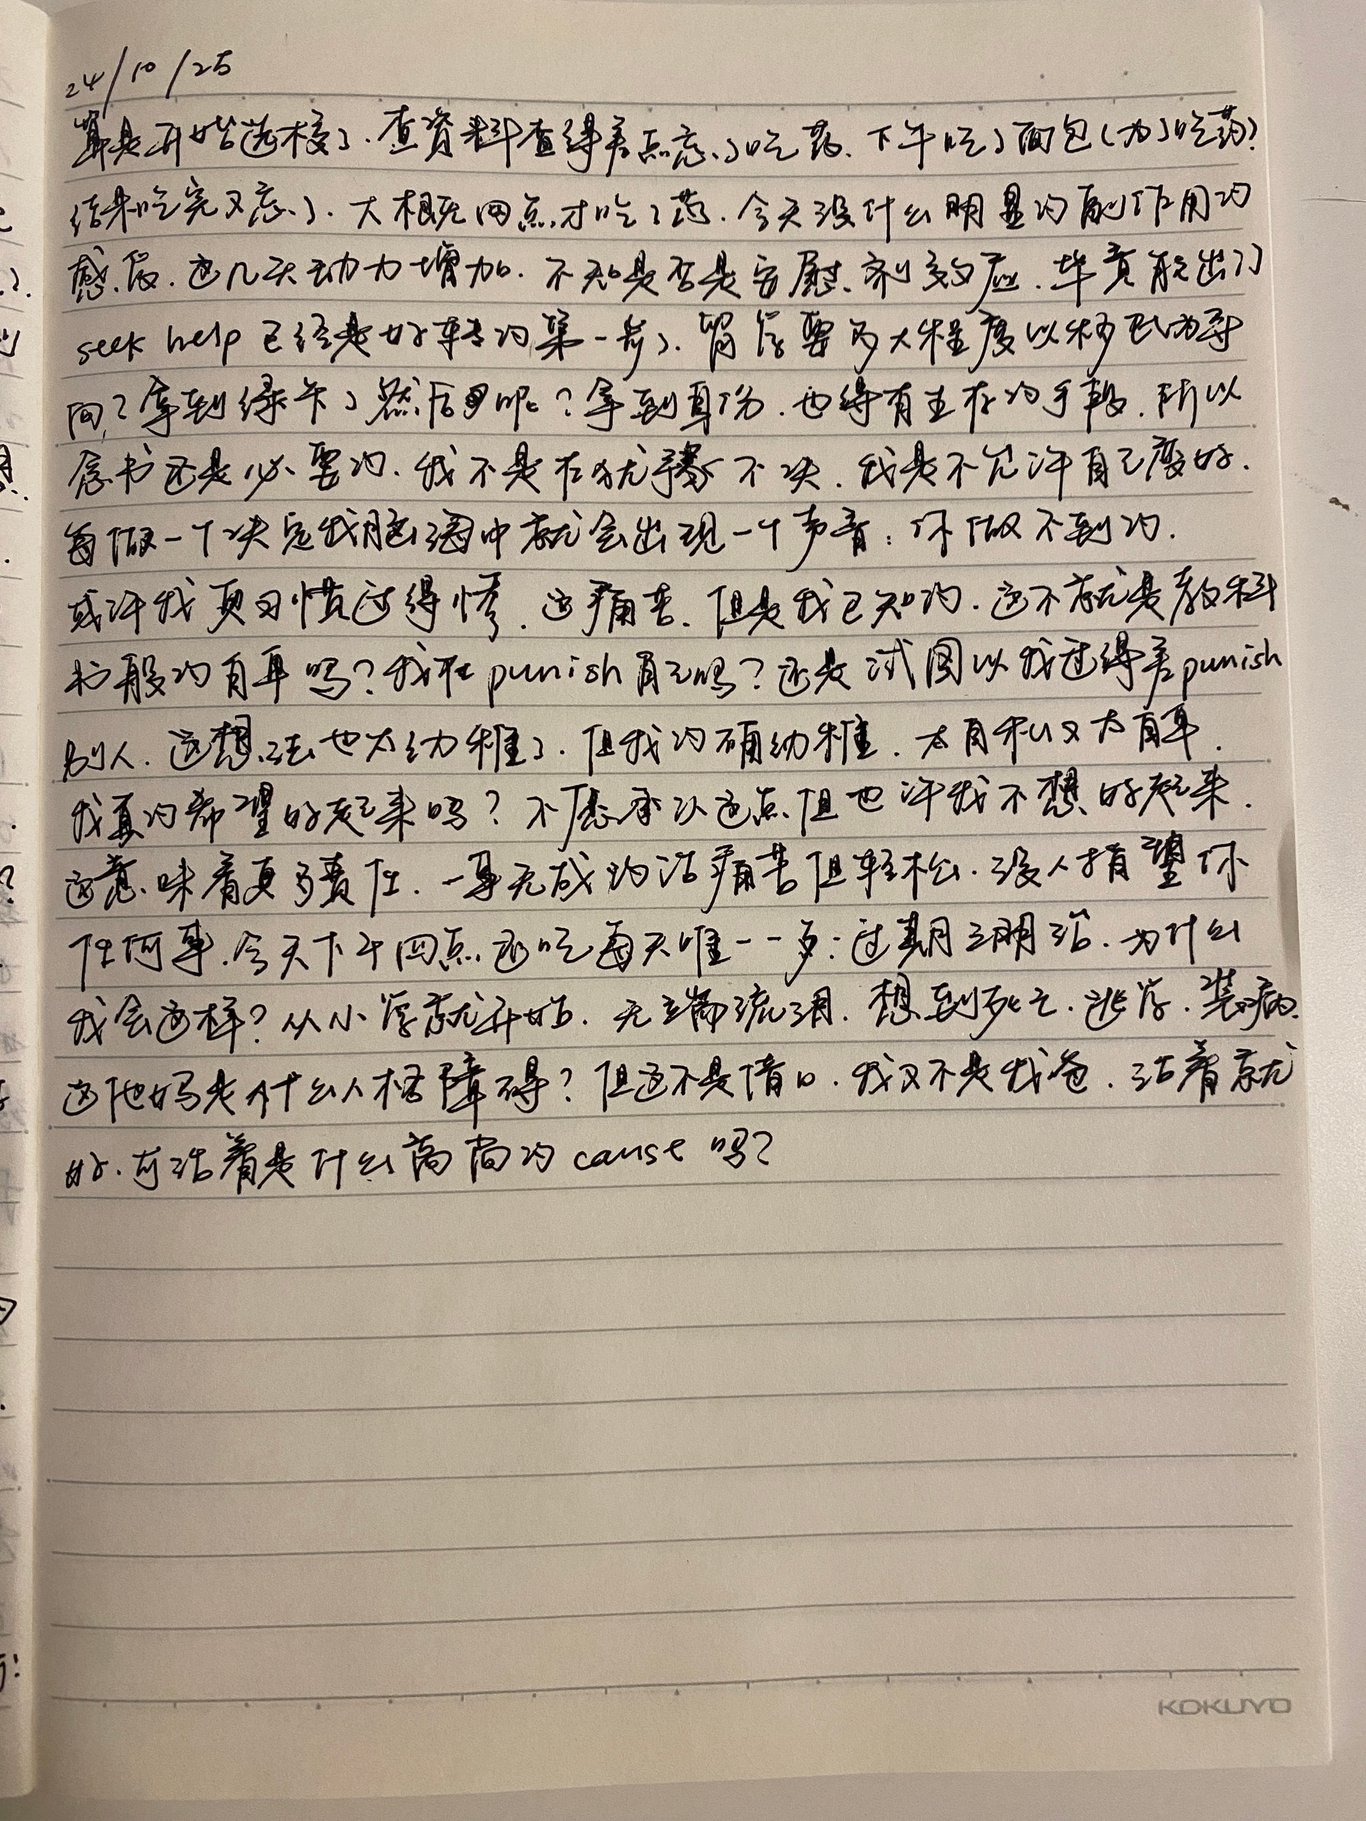 24/10/25
算是开始选校了.查资料查得差点忘了吃药.下午吃了面包(为了吃药)
结果吃完又忘了.大概死四点才吃了药.今天没什么明显的副作用的
感受.这几天动力增加.不知是否是安慰剂效应.毕竟能出门
seek help 已经是好转的第一步了.留学要多大程度以移民为导
向?拿到绿卡了然后呢?拿到身份.也得有生存的手段.所以
念书还是必要的.我不是在犹豫不决.我是不允许自己变好.
每做一个决定我脑海中就会出现一个声音:你做不到的.
或许我更习惯过得惨.这痛苦.但是我已知的.这不就是教科
书般的自卑吗?我在punish自己吗?还是试图以我过得差punish
别人.这想法也太幼稚了.但我的确幼稚.太自私又太自卑.
我真的希望好起来吗?不愿承认这点但也许我不想好起来.
这意味着更多责任.一事无成的活痛苦但轻松.没人指望你
任何事.今天下午四点还吃每天唯一一顿:过期三明治.为什么
我会这样?从小学就开始.无端流泪.想到死亡.逃学.装病.
这他妈是什么人格障碍?但这不是借口.我又不是我爸.活着就
好.可活着是什么高尚的cause吗?
KOKUYO